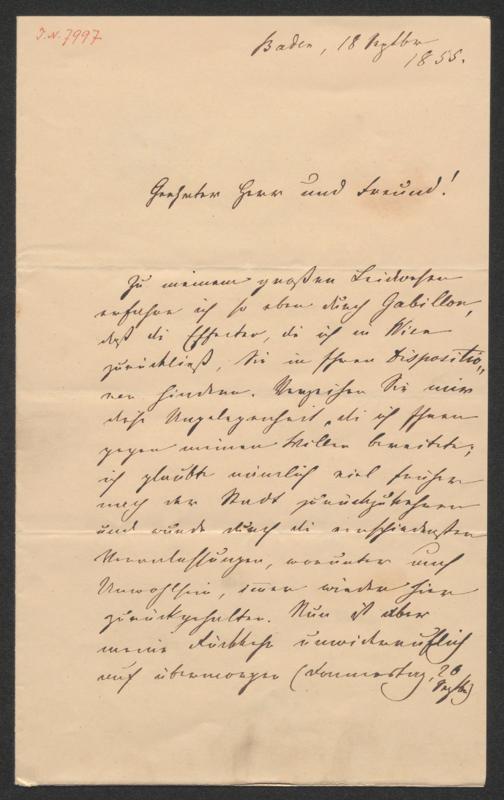 I.N. 7997
Baden, 18 Septbr
1855.
Geehrter Herr und Freund!
Zu meinem großen Leidwesen
erfahre ich so eben durch Gabillon,
daß die Effecten, die ich in Wien
zurückließ, Sie in Ihren Dispositio„
nen hindern. Verzeihen Sie mir
diese Ungelegenheit, die ich Ihnen
gegen meinen Willen bereitete;
ich glaubte nämlich viel früher
nach der Stadt zurückzukehren
und wurde durch die verschiedensten
Veranlassungen, worunter auch
Unwohlsein, immer wieder hier
zurückgehalten. Nun ist aber
meine Rückkehr unwiderruflich
auf übermorgen (Donnerstag, 20
Septbr)